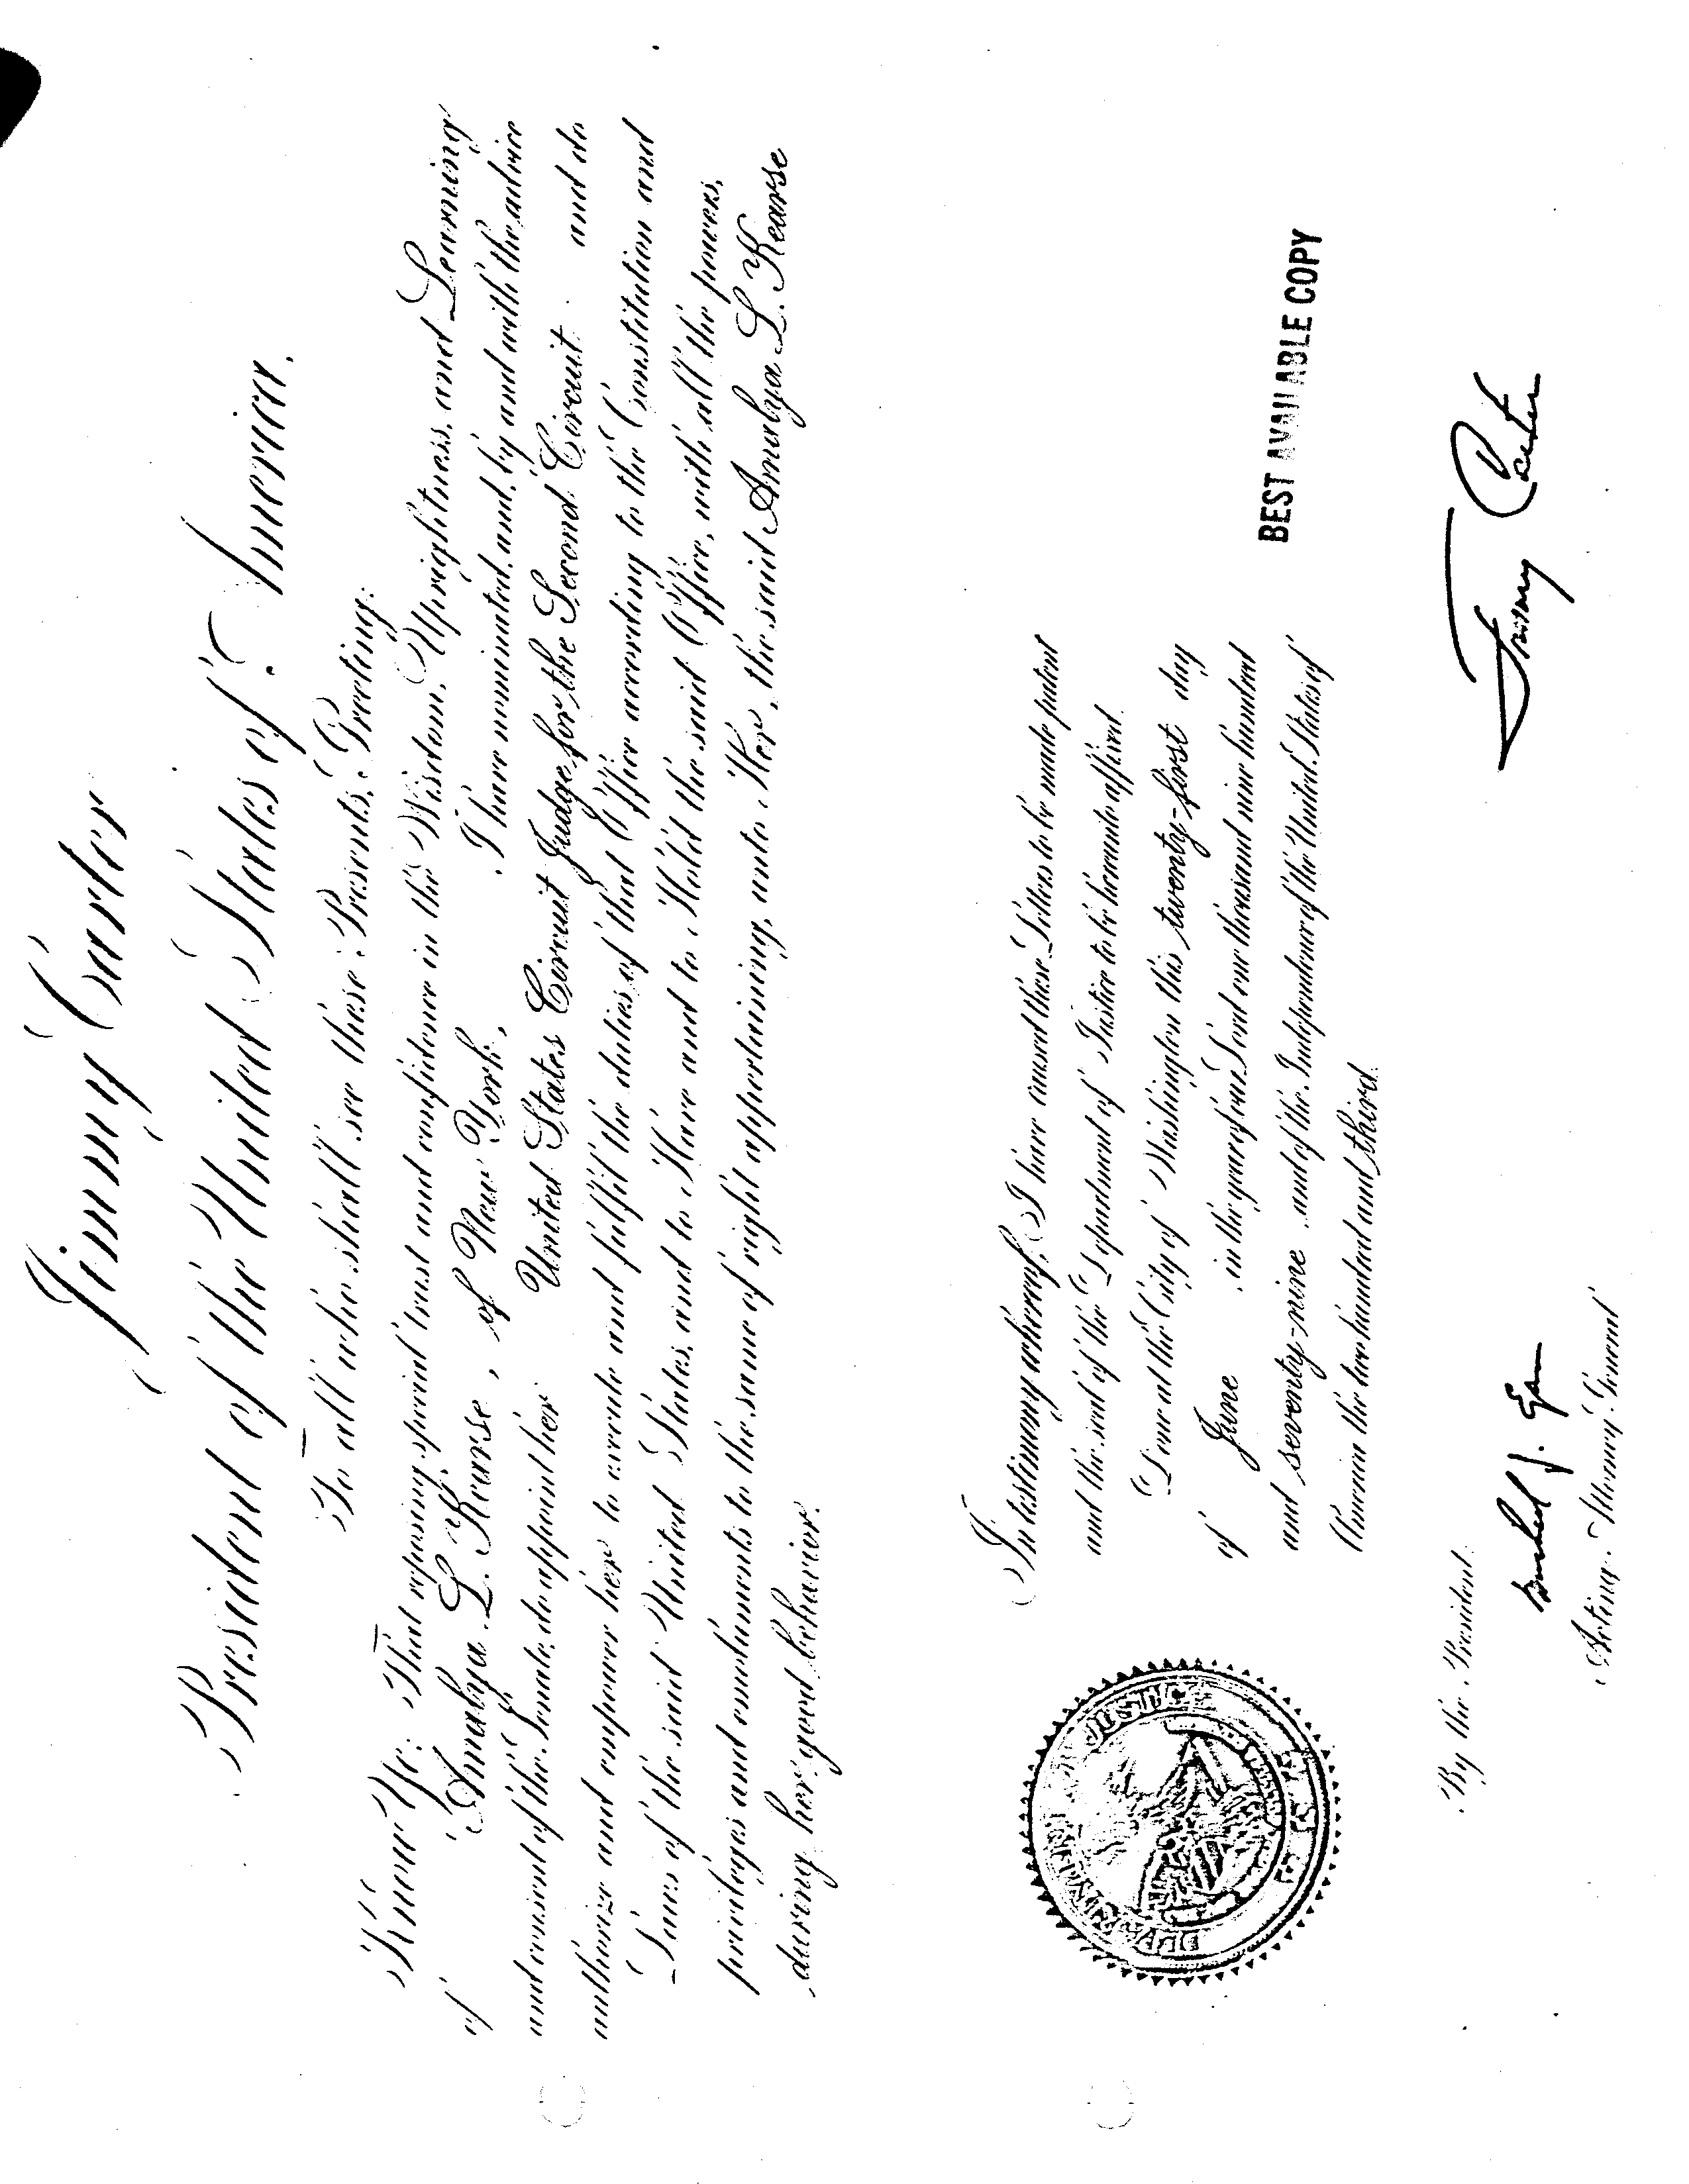 Jimmy Carter
President of the United States of America.
To all who shall see these Presents, Greeting:
Know Ye: That reposing special trust and confidence in the Wisdom, Uprightness, and Learning
of Amalya L. Kearse, of New York, I have nominated, and, by and with the advice
and consent of the Senate, do appoint her United States Circuit Judge for the Second Circuit and do
authorize and empower her to execute and fulfil the duties of that Office according to the Constitution and
Laws of the said United States, and to Have and to Hold the said Office, with all the powers,
privileges and emoluments to the same of right appertaining, unto Her, the said Amalya L. Kearse
during her good behavior.
In testimony whereof, I have caused these Letters to be made patent
and the seal of the Department of Justice to be hereunto affixed.
Done at the City of Washington this twenty-first day
of June in the year of our Lord one thousand nine hundred
and seventy-nine and of the Independence of the United States of
America the two hundred and third.
DEPARTMENT OF JUSTICE
BEST AVAILABLE COPY
Jimmy Carter
By the President:
Michael J. Egan
Acting Attorney General